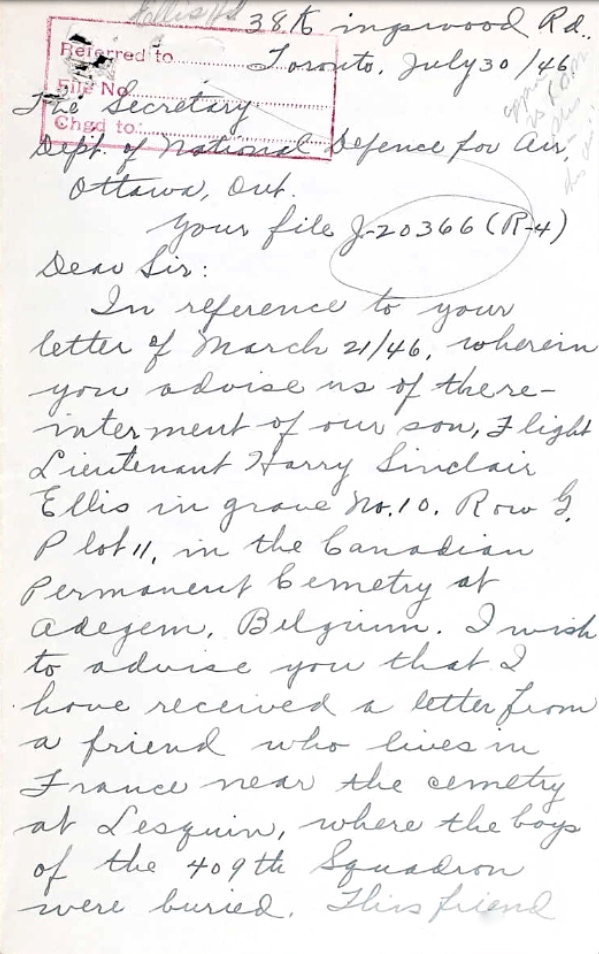 Ellis HS
38 Kingswood Rd.,
Toronto, July 30/46
Referred to
File No.
Chgd to:
The Secretary
Dept. of National Defence for Air,
Ottawa, Ont.
Your file J-20366 (R-4)
Dear Sir:
In reference to your
letter of March 21/46, wherein
you advise us of the re-
interment of our son, Flight
Lieutenant Harry Sinclair
Ellis in grave No. 10. Row G,
Plot 11, in the Canadian
Permanent Cemetry at
Adegem, Belgium. I wish
to advise you that I
have received a letter from
a friend who lives in
France near the cemetry
at Lesquin, where the boys
of the 409th Squadron
were buried. This friend